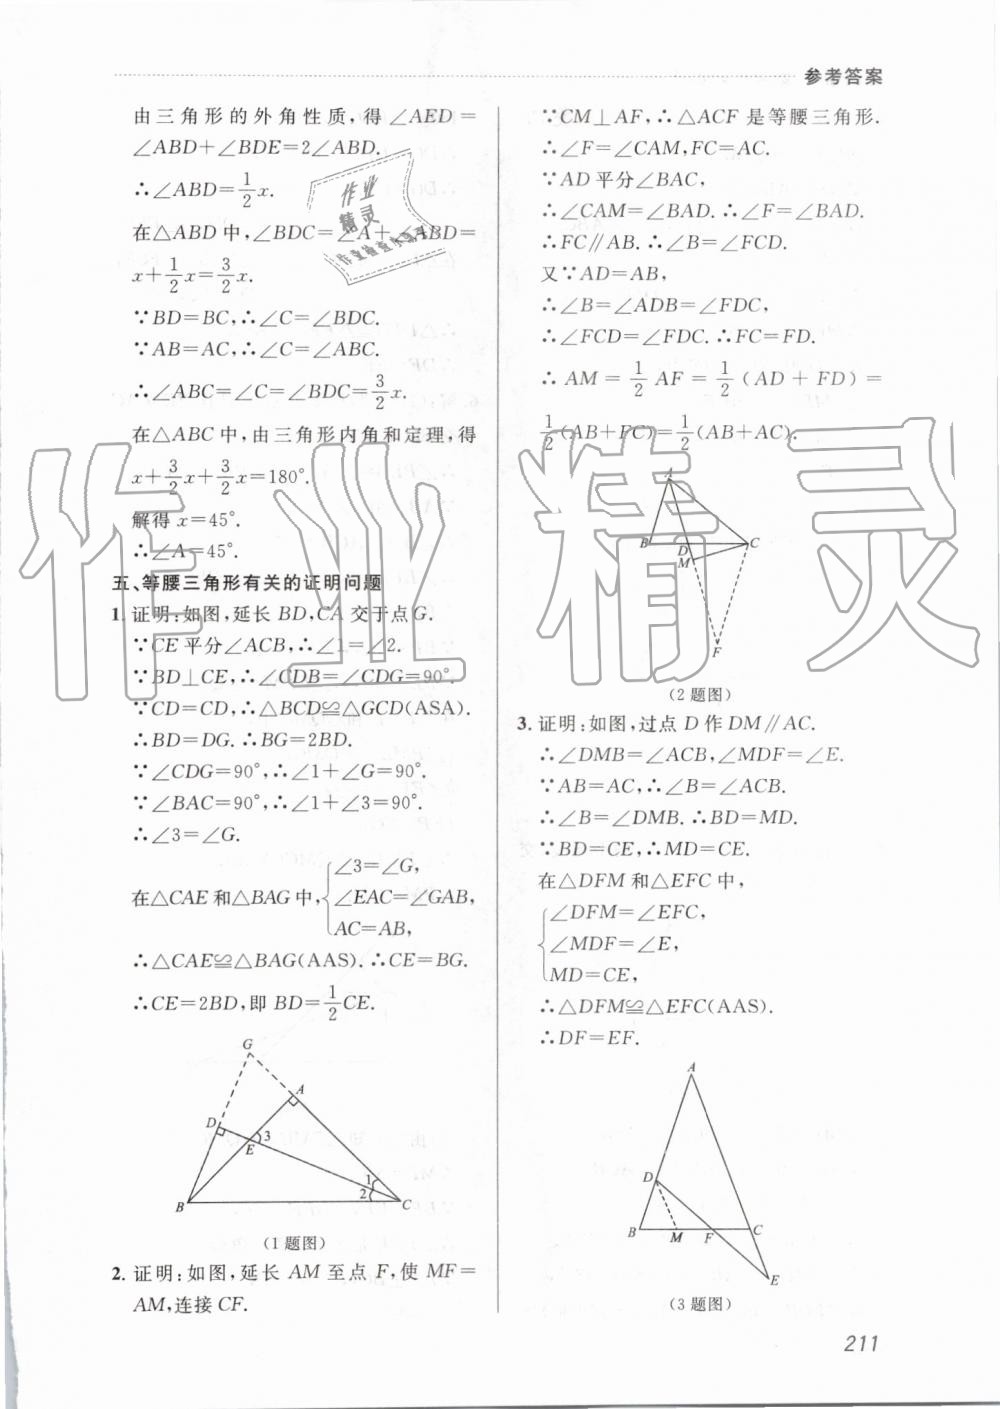 参考答案
由三角形的外角性质,得∠AED=
∠ABD+∠BDE=2∠ABD.
∴∠ABD=1/2x.
在△ABD中,∠BDC=∠A+∠ABD=
x+1/2x=3/2x.
∵BD=BC,∴∠C=∠BDC.
∵AB=AC,∴∠C=∠ABC.
∴∠ABC=∠C=∠BDC=3/2x.
在△ABC中,由三角形内角和定理,得
x+3/2x+3/2x=180°.
解得x=45°.
∴∠A=45°.
五、等腰三角形有关的证明问题
1.证明:如图,延长BD,CA交于点G.
∵CE平分∠ACB,∴∠1=∠2.
∵BD⊥CE,∴∠CDB=∠CDG=90°.
∵CD=CD,∴△BCD≌△GCD(ASA).
∴BD=DG.∴BG=2BD.
∵∠CDG=90°,∴∠1+∠G=90°.
∵∠BAC=90°,∴∠1+∠3=90°.
∴∠3=∠G.
在△CAE和△BAG中,{∠3=∠G,
∠EAC=∠GAB,
AC=AB,
∴△CAE≌△BAG(AAS).∴CE=BG.
∴CE=2BD,即BD=1/2CE.
G
A
D
E
3
1
2
B
C
(1题图)
2.证明:如图,延长AM至点F,使MF=
AM,连接CF.
∵CM⊥AF,∴△ACF是等腰三角形.
∴∠F=∠CAM,FC=AC.
∵AD平分∠BAC,
∴∠CAM=∠BAD.∴∠F=∠BAD.
∴FC∥AB.∴∠B=∠FCD.
又∵AD=AB,
∴∠B=∠ADB=∠FDC,
∴∠FCD=∠FDC.∴FC=FD.
∴AM=1/2AF=1/2(AD+FD)=
1/2(AB+FC)=1/2(AB+AC).
A
B
D
C
M
F
(2题图)
3.证明:如图,过点D作DM∥AC.
∴∠DMB=∠ACB,∠MDF=∠E.
∵AB=AC,∴∠B=∠ACB.
∴∠B=∠DMB.∴BD=MD.
∵BD=CE,∴MD=CE.
在△DFM和△EFC中,
{∠DFM=∠EFC,
∠MDF=∠E,
MD=CE,
∴△DFM≌△EFC(AAS).
∴DF=EF.
A
D
B
M
F
C
E
(3题图)
211
作业精灵
作业
精灵